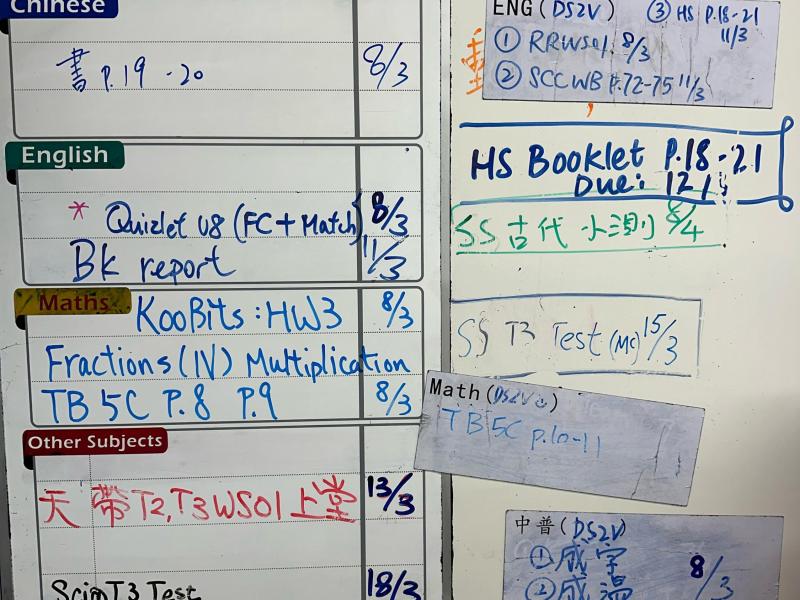 Chinese
書 p.19-20 8/3
English
* Quizlet U8 (FC + Match) 8/3
Bk report 11/3
Maths
KooBits : HW3 8/3
Fractions (IV) Multiplication
TB 5C P.8 P.9 8/3
Other Subjects
天 帶 T2, T3 WS01 上堂 13/3
T3 Test 18/3
ENG (DS2V) ③ HS P.18-21
11/3
① RRWS01 8/3
② SCCWB P.72-75 11/3
HS Booklet P.18-21
Due: 12
SS 古代 小測 8/4
SS T3 Test (MC) 15/3
Math (DS2V)
TB 5C p.10-11
中普 (DS2V)
① 成字 8/3
② 成